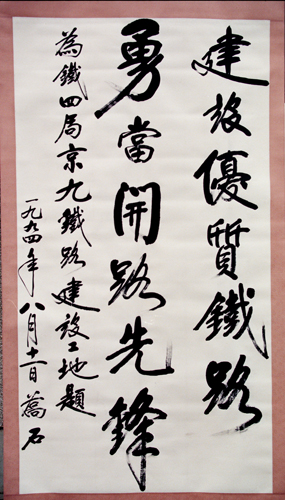 建设優質鐵路
勇當開路先鋒
為鐵四局京九鐵路建設工地題
一九九四年八月十一日 蒿石